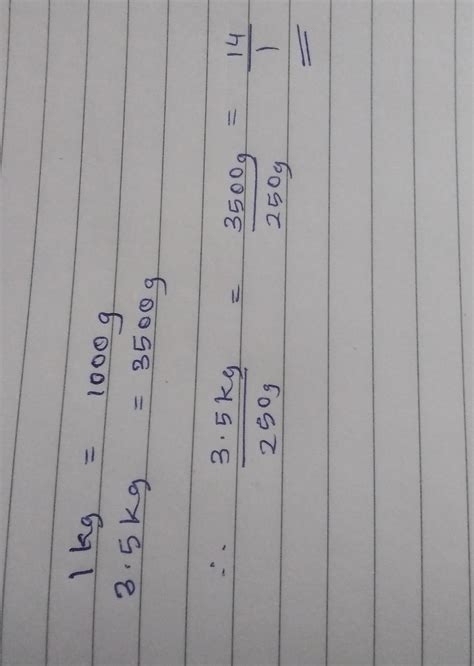 1 kg = 1000g
3.5kg = 3500g
∴ 3.5kg/250g = 3500g/250g = 14/1